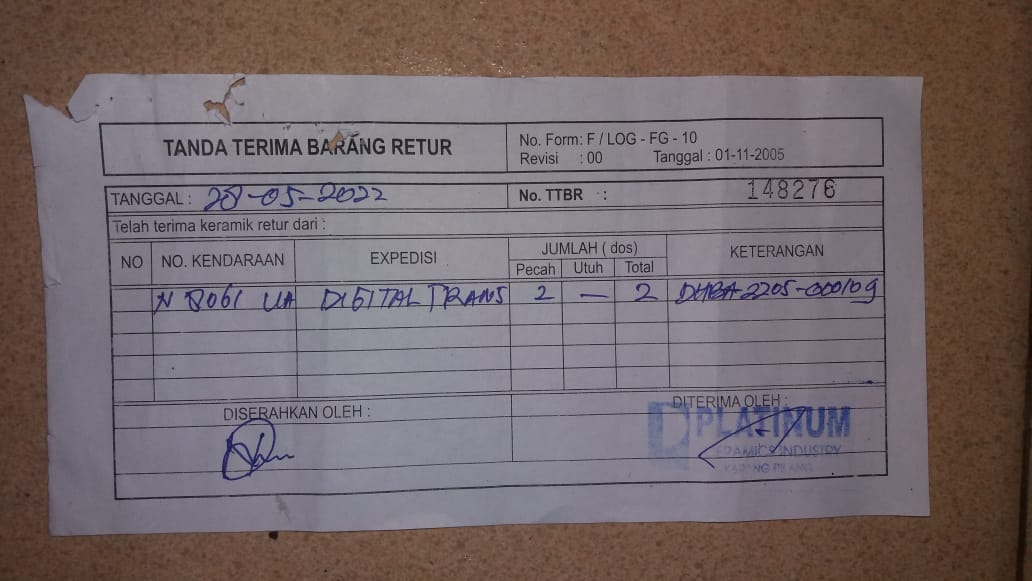 TANDA TERIMA BARANG RETUR
No. Form: F / LOG - FG - 10
Revisi : 00 Tanggal : 01-11-2005
TANGGAL : 28-05-2022
No. TTBR : 148276
Telah terima keramik retur dari :
NO NO. KENDARAAN EXPEDISI JUMLAH ( dos) KETERANGAN
Pecah Utuh Total
N 8061 UA DIGITAL TRANS 2 — 2 DHBA 2205-000109
DISERAHKAN OLEH :
DITERIMA OLEH :
PLATINUM
CERAMICS INDUSTRY
KARANG PILANG